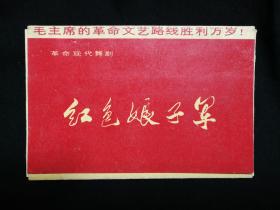 毛主席的革命文艺路线胜利万岁!
革命现代舞剧
红色娘子军